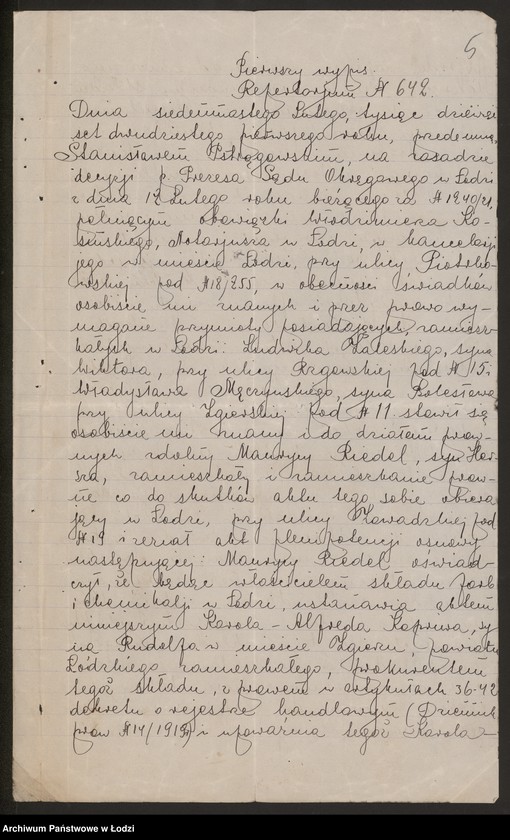 5
Pierwszy wypis.
Repertorjum N 642.
Dnia siedemnastego Lutego, tysiąc dziewię
set dwudziestego pierwszego roku, przedemną,
Stanisławem Pstrągowskim, na zasadzie
decyzji p. Prezesa Sądu Okręgowego w Łodzi
z dnia 12 Lutego roku bieżącego za N 1240/21,
pełniącym obowiązki Włodzimierza Ko-
sińskiego, Notarjusza w Łodzi, w kancelarji
jego w mieście Łodzi, przy ulicy Piotrko-
wskiej pod N 18/255, w obecności świadków
osobiście mi znanych i przez prawo wy-
magane przymioty posiadających, zamiesz-
kałych w Łodzi: Ludwika Zaleskiego, syna
Wiktora, przy ulicy Rzgowskiej pod N 15 i
Władysława Męczyńskiego, syna Bolesława
przy ulicy Zgierskiej pod N 11 stawił się
osobiście mi znany i do działań praw-
nych zdolny Maurycy Riedel, syn
zamieszkały i zamieszkanie praw-
ne co do skutków aktu tego sobie obiera
jący w Łodzi, przy ulicy Zawadzkiej pod
N 19 i zeznał akt plenipotencji osnowy
następującej: Maurycy Riedel oświad-
czył, że będąc właścicielem składu farb
i chemikalji w Łodzi, ustanawia aktem
niniejszym Karola-Alfreda sy
na Rudolfa w mieście Zgierzu, powiatu
Łódzkiego zamieszkałego, prokurentem
tegoż składu, z prawem w artykułach 36-42
dekretu o rejestrze handlowym (Dziennik
praw N 14/1919) i upoważnia tegoż Karola-
Archiwum Państwowe w Łodzi